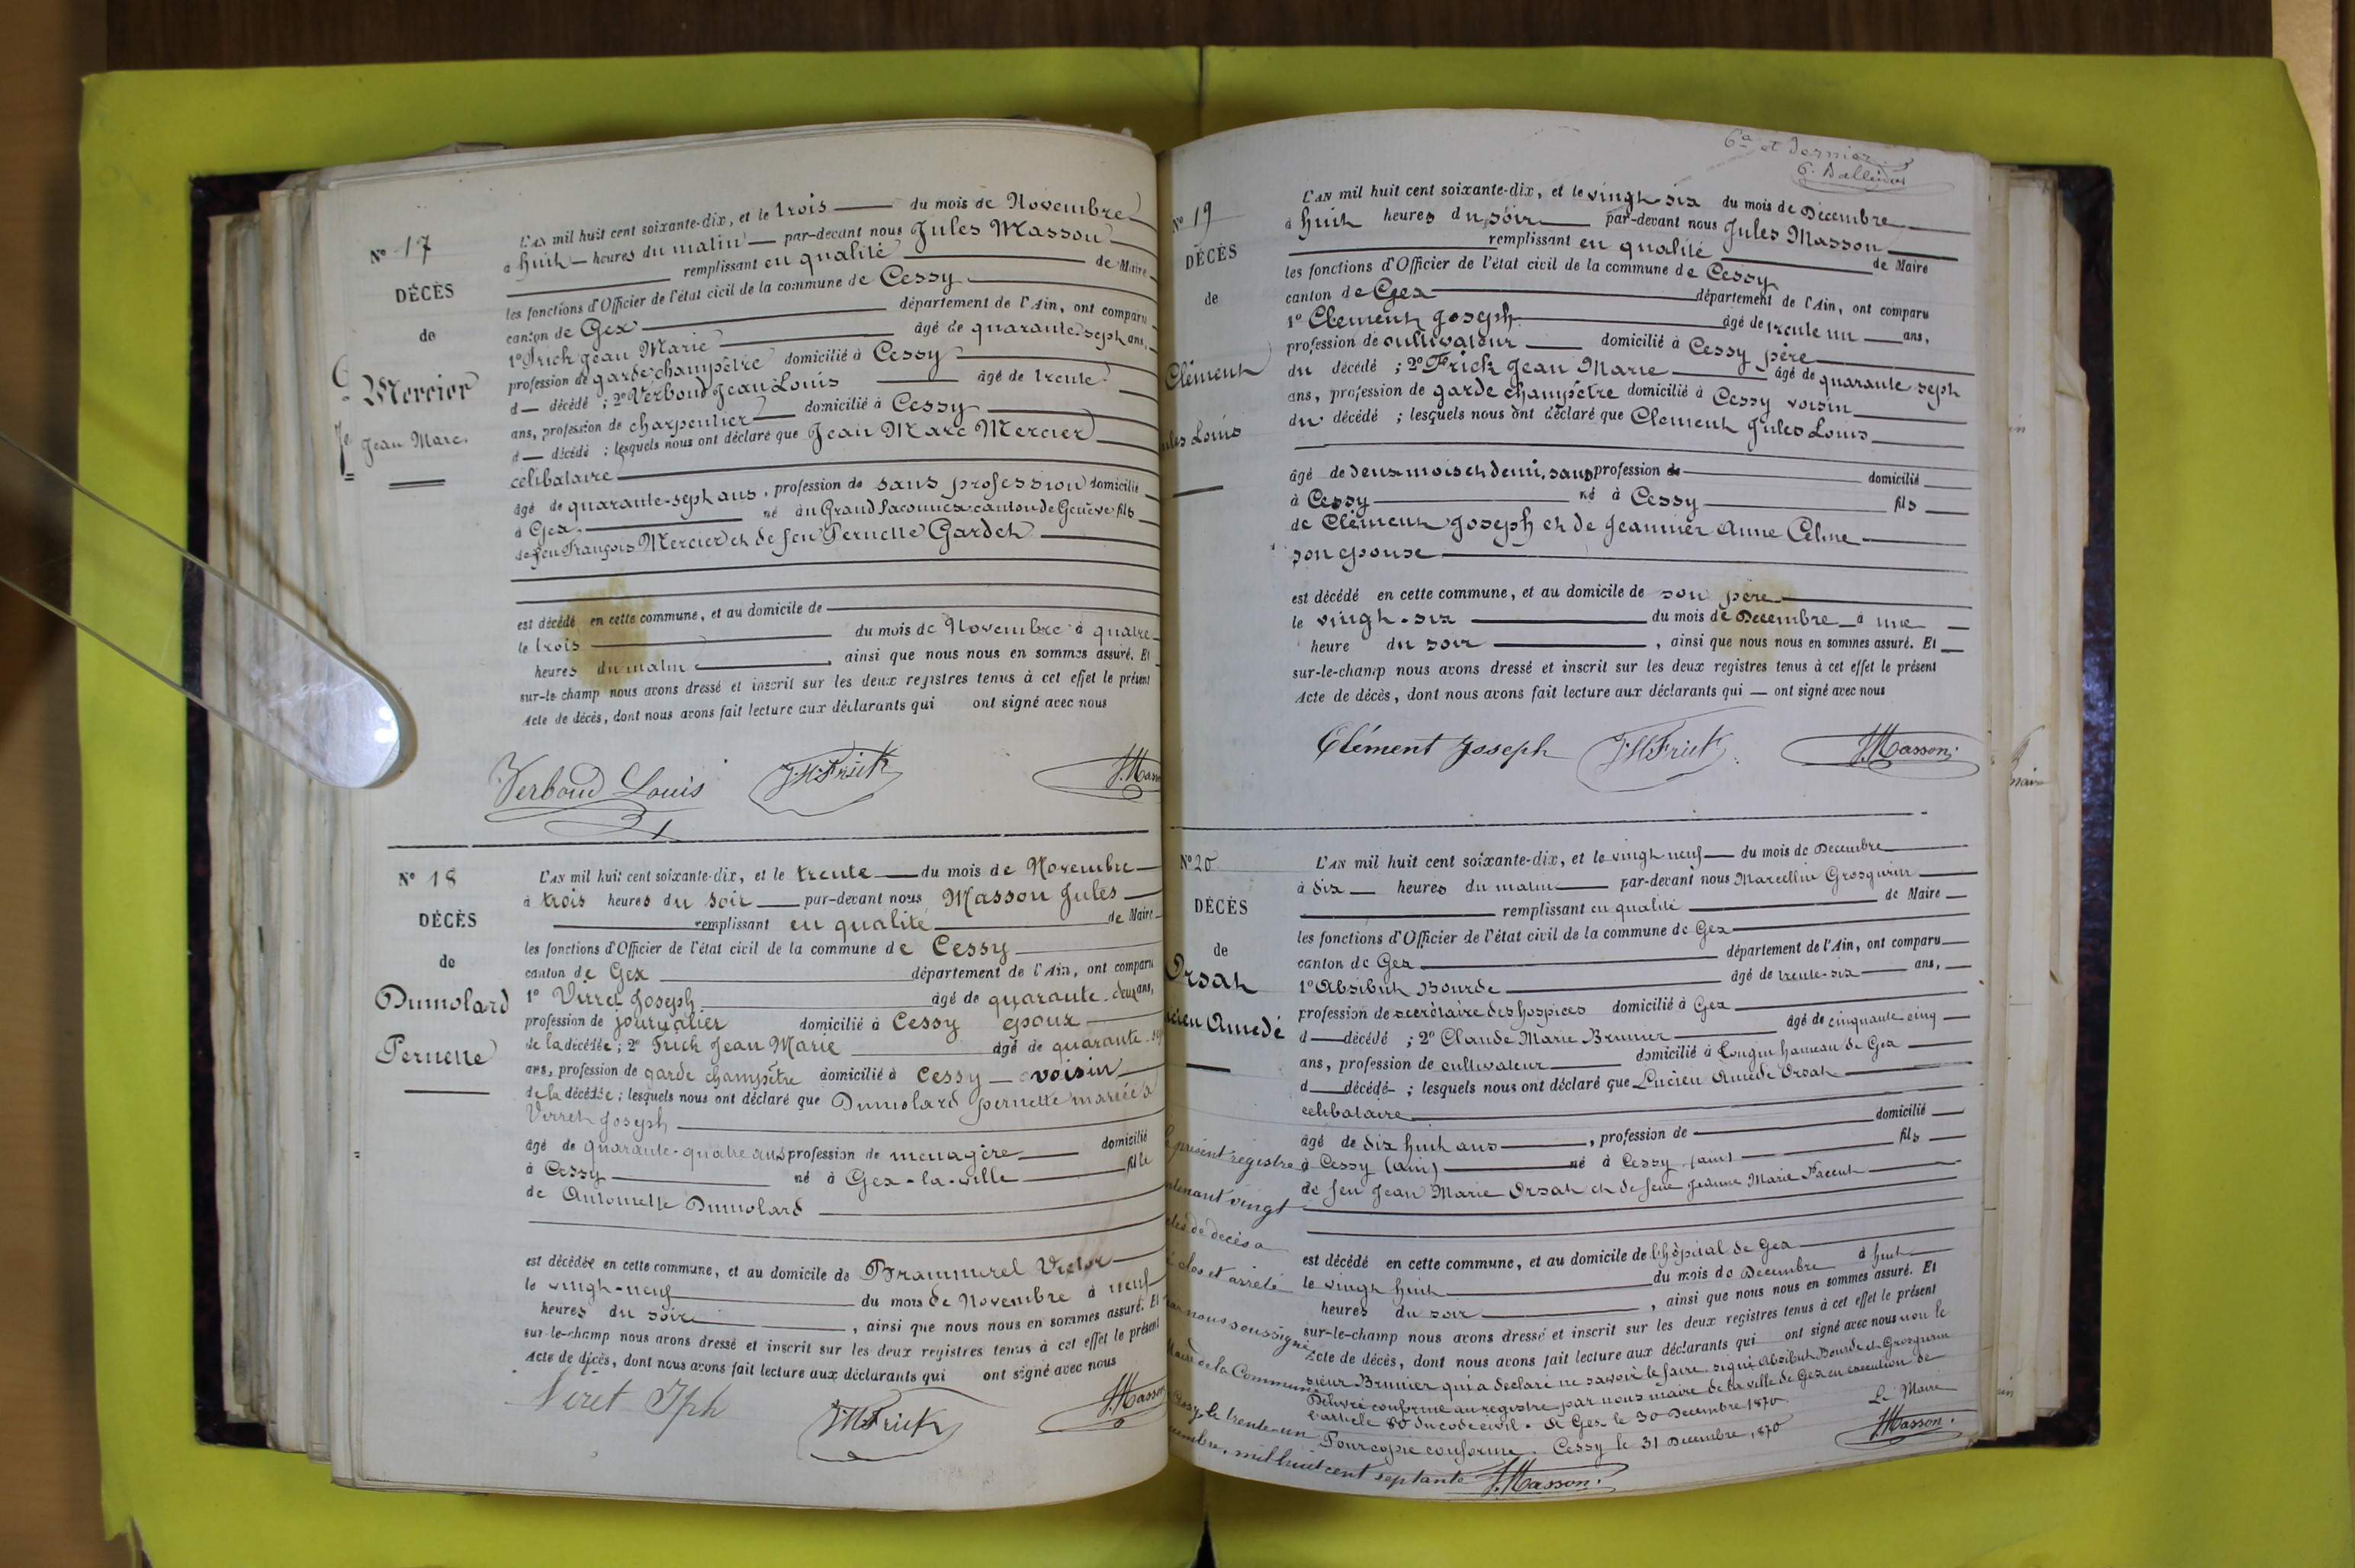 N° 17
DÉCÈS
de
Mercier
Jean Marc.
L'AN mil huit cent soixante-dix, et le trois du mois de Novembre
à huit heures du matin par-devant nous Jules Masson
remplissant en qualité de Maire
les fonctions d'Officier de l'état civil de la commune de Cessy
canton de Gex département de l'Ain, ont comparu
1° Frick Jean Marie âgé de quarante-sept ans,
profession de garde champêtre domicilié à Cessy
d décédé ; 2° Verboud Jean Louis âgé de trente
ans, profession de charpentier domicilié à Cessy
d décédé ; lesquels nous ont déclaré que Jean Marc Mercier
célibataire
âgé de quarante-sept ans, profession de sans profession domicilié
à Gex né au Grand Saconnex canton de Genève fils
de feu François Mercier et de feu Pernette Gardet
est décédé en cette commune, et au domicile de
le trois du mois de Novembre à quatre
heures du matin, ainsi que nous nous en sommes assuré. Et
sur-le champ nous avons dressé et inscrit sur les deux registres tenus à cet effet le présent
Acte de décès, dont nous avons fait lecture aux déclarants qui ont signé avec nous
Verboud Louis J.M. Frick J. Masson
N° 18
DÉCÈS
de
Dumolard
Pernette
L'AN mil huit cent soixante-dix, et le trente du mois de Novembre
à trois heures du soir par-devant nous Masson Jules
remplissant en qualité de Maire
les fonctions d'Officier de l'état civil de la commune de Cessy
canton de Gex département de l'Ain, ont comparu
1° Virret Joseph âgé de quarante-deux ans,
profession de journalier domicilié à Cessy époux
de la décédée ; 2° Frick Jean Marie âgé de quarante-sept
ans, profession de garde champêtre domicilié à Cessy voisin
de la décédée ; lesquels nous ont déclaré que Dumolard pernette mariée à
Virret Joseph
âgé de quarante-quatre ans profession de ménagère domicilié
à Cessy né à Gex-la-ville fille
de Antoinette Dumolard
est décédée en cette commune, et au domicile de Brammerel Victor
le vingt-neuf du mois de Novembre à neuf
heures du soir, ainsi que nous nous en sommes assuré. Et
sur-le-champ nous avons dressé et inscrit sur les deux registres tenus à cet effet le présent
Acte de décès, dont nous avons fait lecture aux déclarants qui ont signé avec nous
Viret Jph J.M. Frick J. Masson
6e et dernier
N° 19
DÉCÈS
de
Clément
Jules Louis
L'AN mil huit cent soixante-dix, et le vingt-six du mois de Décembre
à huit heures du soir par-devant nous Jules Masson
remplissant en qualité de Maire
les fonctions d'Officier de l'état civil de la commune de Cessy
canton de Gex département de l'Ain, ont comparu
1° Clement Joseph âgé de trente un ans,
profession de cultivateur domicilié à Cessy père
du décédé ; 2° Frick Jean Marie âgé de quarante sept
ans, profession de garde champêtre domicilié à Cessy voisin
du décédé ; lesquels nous ont déclaré que Clement Jules Louis
âgé de deux mois et demi, sans profession de domicilié
à Cessy né à Cessy fils
de Clément Joseph et de Jeannier Anne Céline
son epouse
est décédé en cette commune, et au domicile de son père
le vingt-six du mois de Décembre à une
heure du soir, ainsi que nous nous en sommes assuré. Et
sur-le-champ nous avons dressé et inscrit sur les deux registres tenus à cet effet le présent
Acte de décès, dont nous avons fait lecture aux déclarants qui ont signé avec nous
Clément Joseph J.M. Frick J. Masson
N° 20
DÉCÈS
de
Orsat
Lucien Amedé
L'AN mil huit cent soixante-dix, et le vingt neuf du mois de Décembre
à dix heures du matin par-devant nous Marcellin Grosgurin
remplissant en qualité de Maire
les fonctions d'Officier de l'état civil de la commune de Gex
canton de Gex département de l'Ain, ont comparu
1° Absibut Bourde âgé de trente-six ans,
profession de secrétaire des hospices domicilié à Gex
d décédé ; 2° Claude Marie Brunier âgé de cinquante cinq
ans, profession de cultivateur domicilié à Tougin hameau de Gex
d décédé ; lesquels nous ont déclaré que Lucien Amedé Orsat
celibataire
âgé de dix huit ans, profession de domicilié
à Cessy (ain) né à Cessy (ain) fils
de feu Jean Marie Orsat et de feue Jeanne Marie
est décédé en cette commune, et au domicile de l'hôpital de Gex
le vingt huit du mois de Décembre à huit
heures du soir, ainsi que nous nous en sommes assuré. Et
sur-le-champ nous avons dressé et inscrit sur les deux registres tenus à cet effet le présent
Acte de décès, dont nous avons fait lecture aux déclarants qui ont signé avec nous non le
sieur Brunier qui a déclaré ne savoir le faire. signé Absibut Bourde et Grosgurin
Délivré conforme au registre par nous maire de la ville de Gex en execution de
l'article 80 du code civil. à Gex le 30 Décembre 1870.
Pour copie conforme. Cessy le 31 Décembre 1870
Le Maire
J. Masson.
le présent registre
contenant vingt
actes de décès a
été clos et arrêté
par nous soussigné
Maire de la Commune
Cessy, le trente-un
Décembre, mil huit cent septante
J. Masson.